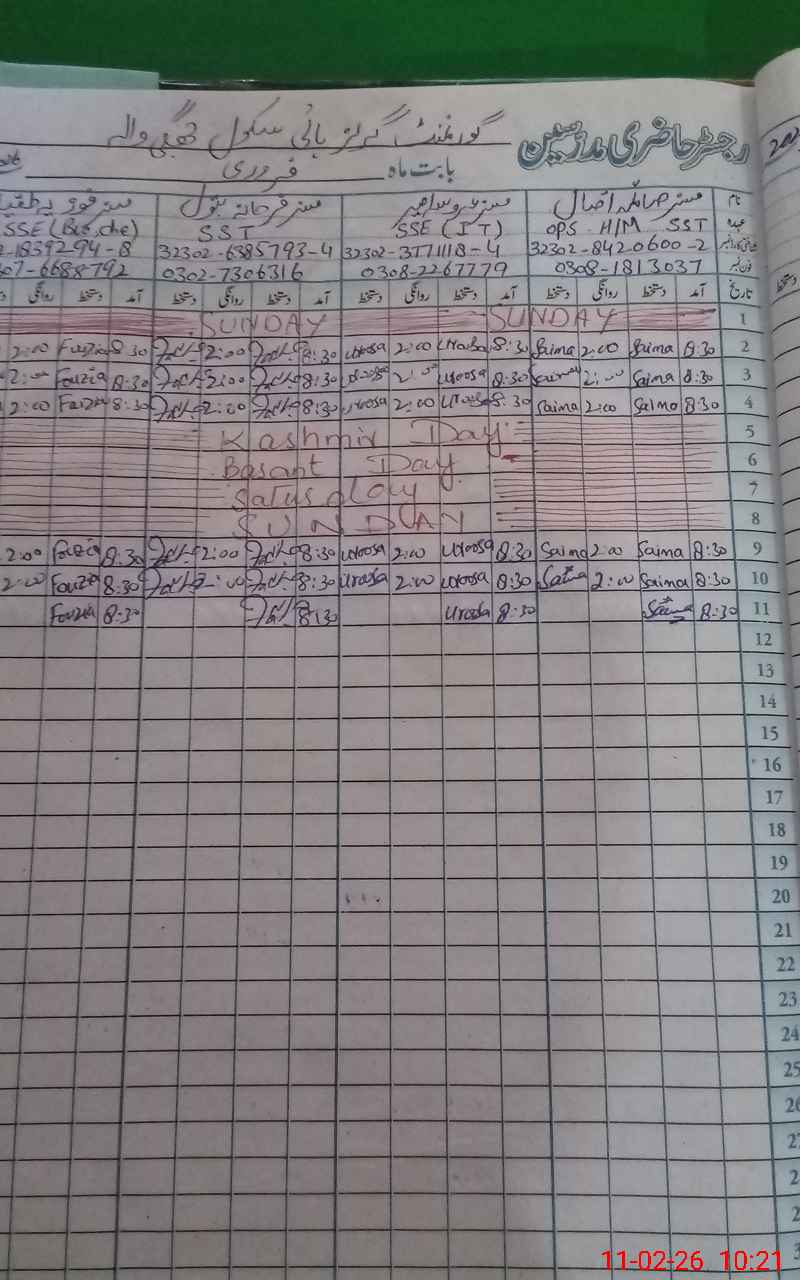 رجسٹر حاضری مدرسین گورنمنٹ گرلز ہائی سکول
بابت ماہ فروری
نام مسز صائمہ مسز مسز فرحانہ بتول مسز فوزیہ
عہدہ OPS H/M SST SSE (IT) SST SSE (Bio, che)
32302-8420600-2 32302-3771118-4 32302-6385793-4 2-1839294-8
فون نمبر 0308-1813037 0308-2267779 0302-7306316 307-6688792
تاریخ آمد دستخط روانگی دستخط آمد دستخط روانگی دستخط آمد دستخط روانگی دستخط آمد دستخط روانگی
1 SUNDAY SUNDAY
2 8:30 Saima 2:00 Saima 8:30 Uroosa 2:00 Uroosa 8:30 2:00 8:30 Fouzia 2:00
3 8:30 Saima 2:00 Saima 8:30 Uroosa 2:00 8:30 2:00 8:30 Fouzia 2:00
4 8:30 Saima 2:00 Saima 8:30 Uroosa 2:00 Uroosa 8:30 2:00 8:30 Fouzia 2:00
5 Kashmir Day
6 Basant Day
7
8 SUNDAY
9 8:30 Saima 2:00 Saima 8:30 Uroosa 2:00 Uroosa 8:30 2:00 8:30 Fouzia 2:00
10 8:30 Saima 2:00 Saima 8:30 Uroosa 2:00 Uroosa 8:30 2:00 8:30 Fouzia 2:00
11 8:30 Saima 8:30 Uroosa 8:30 8:30 Fouzia
12
13
14
15
16
17
18
19
20
21
22
23
24
25
11-02-26 10:21